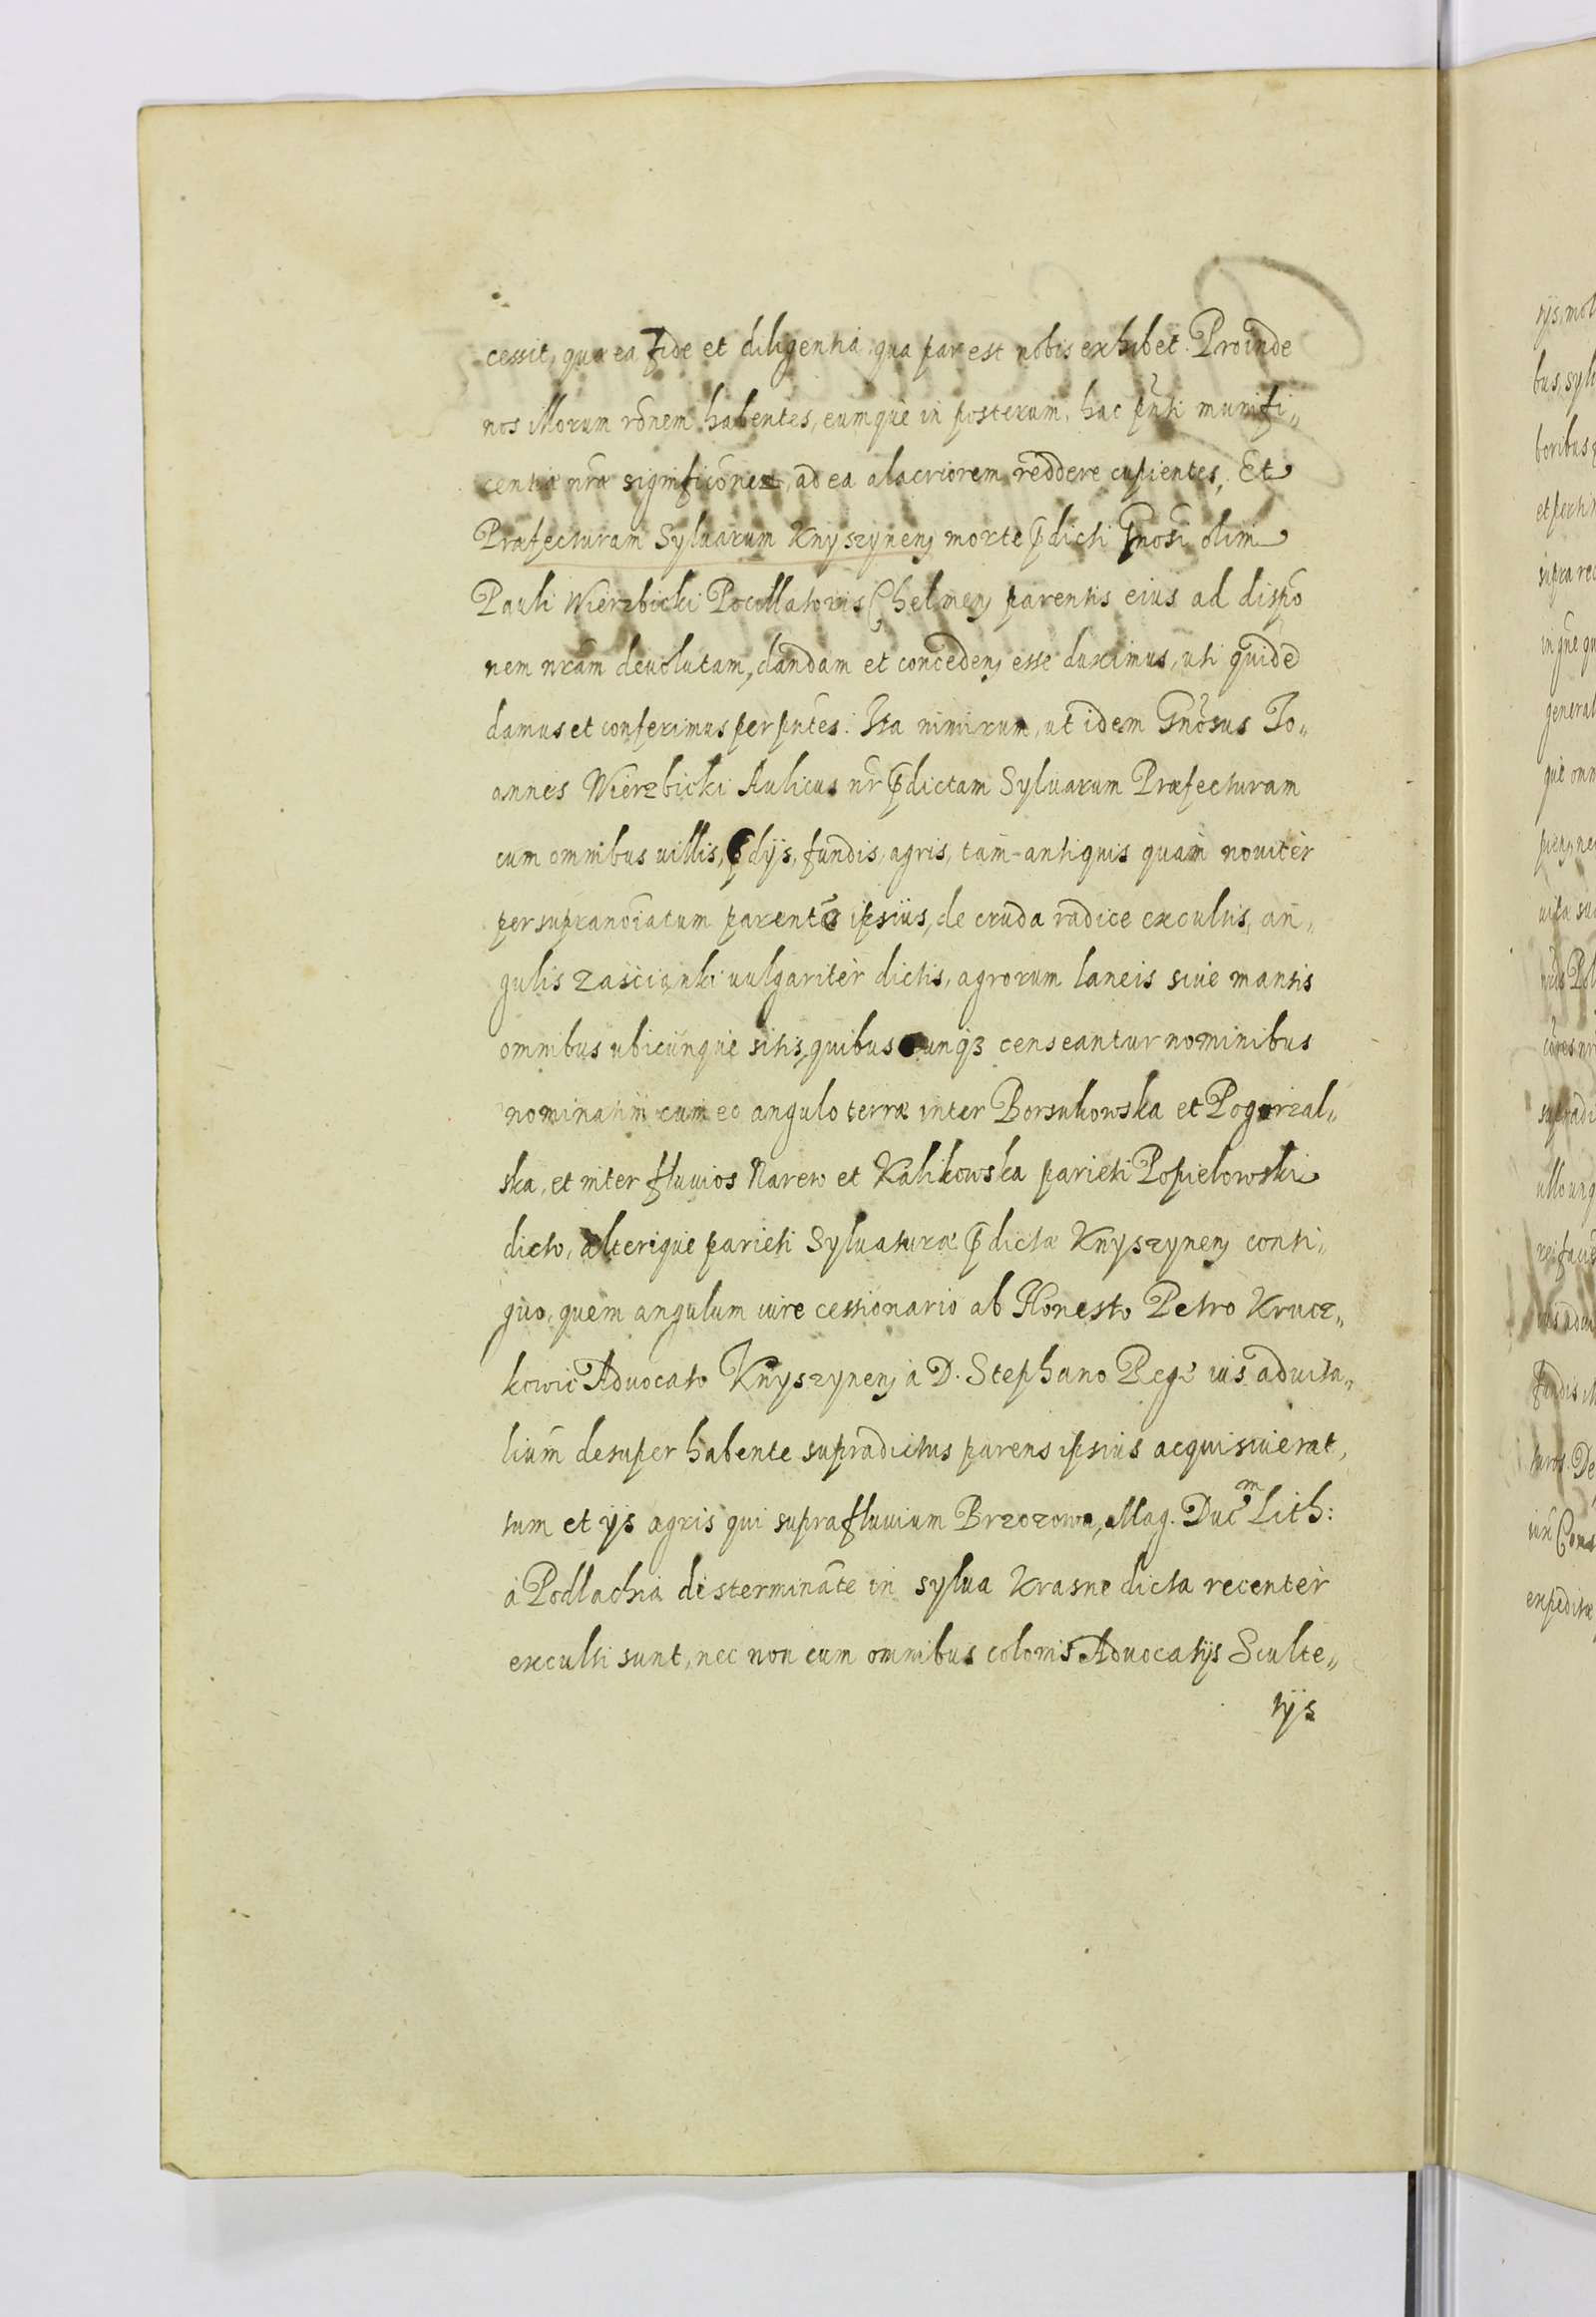 cessit, quæ ea fide et diligentia qua par est nobis exhibet. Proinde
nos illorum rõnem habentes, eumque in posterum, hac pñti munifi„
centiæ nræ significõne, ad ea alacriorem reddere cupientes, Et
Præfecturam Syluarum Knyszynenꝭ morte p̃dicti Gnosi olim
Pauli Wierzbicki Pocillatoris Chelmenꝭ parentis eius ad dispõ
nem nrãm deuolutam, dandam et concedenꝭ esse duximus, uti quidẽ
damus et conferimus per pñtes. Ita nimirum, ut idem Gnõsus Jo„
annes Wierzbicki Aulicus nr̃ p̃dictam Syluarum Præfecturam
cum omnibus uillis, p̃dijs, fundis, agris, tam antiquis quam nouiter
per supranõiatum parentẽ ipsius, de cruda radice excultis, an„
gulis zaścianki uulgariter dictis, agrorum laneis siue mansis
omnibus ubicunque sitis, quibuscunqꝫ censeantur nominibus
nominatim cum eo angulo terræ inter Borsukowska et Pogorzal„
ska, et inter fluuios Narew et Kalikowska parieti Popielowski
dicto, alterique parieti Syluaturæ p̃dictæ Knyszynenꝭ conti„
guo, quem angulum iure cessionario ab Honesto Petro Krucz„
kowic Aduocato Knyszynenꝭ à D. Stephano Rege ius aduita„
lium desuper habente supradictus parens ipsius acquisiuerat,
tum et ijs agris qui supra fluuium Brzozowa, Mag. Duc̃ᵐ Lith:
à Podlachia disterminãte in sylua Krasne dicta recenter
exculti sunt, nec non cum omnibus colonis Aduocatijs Sculte„
tijs